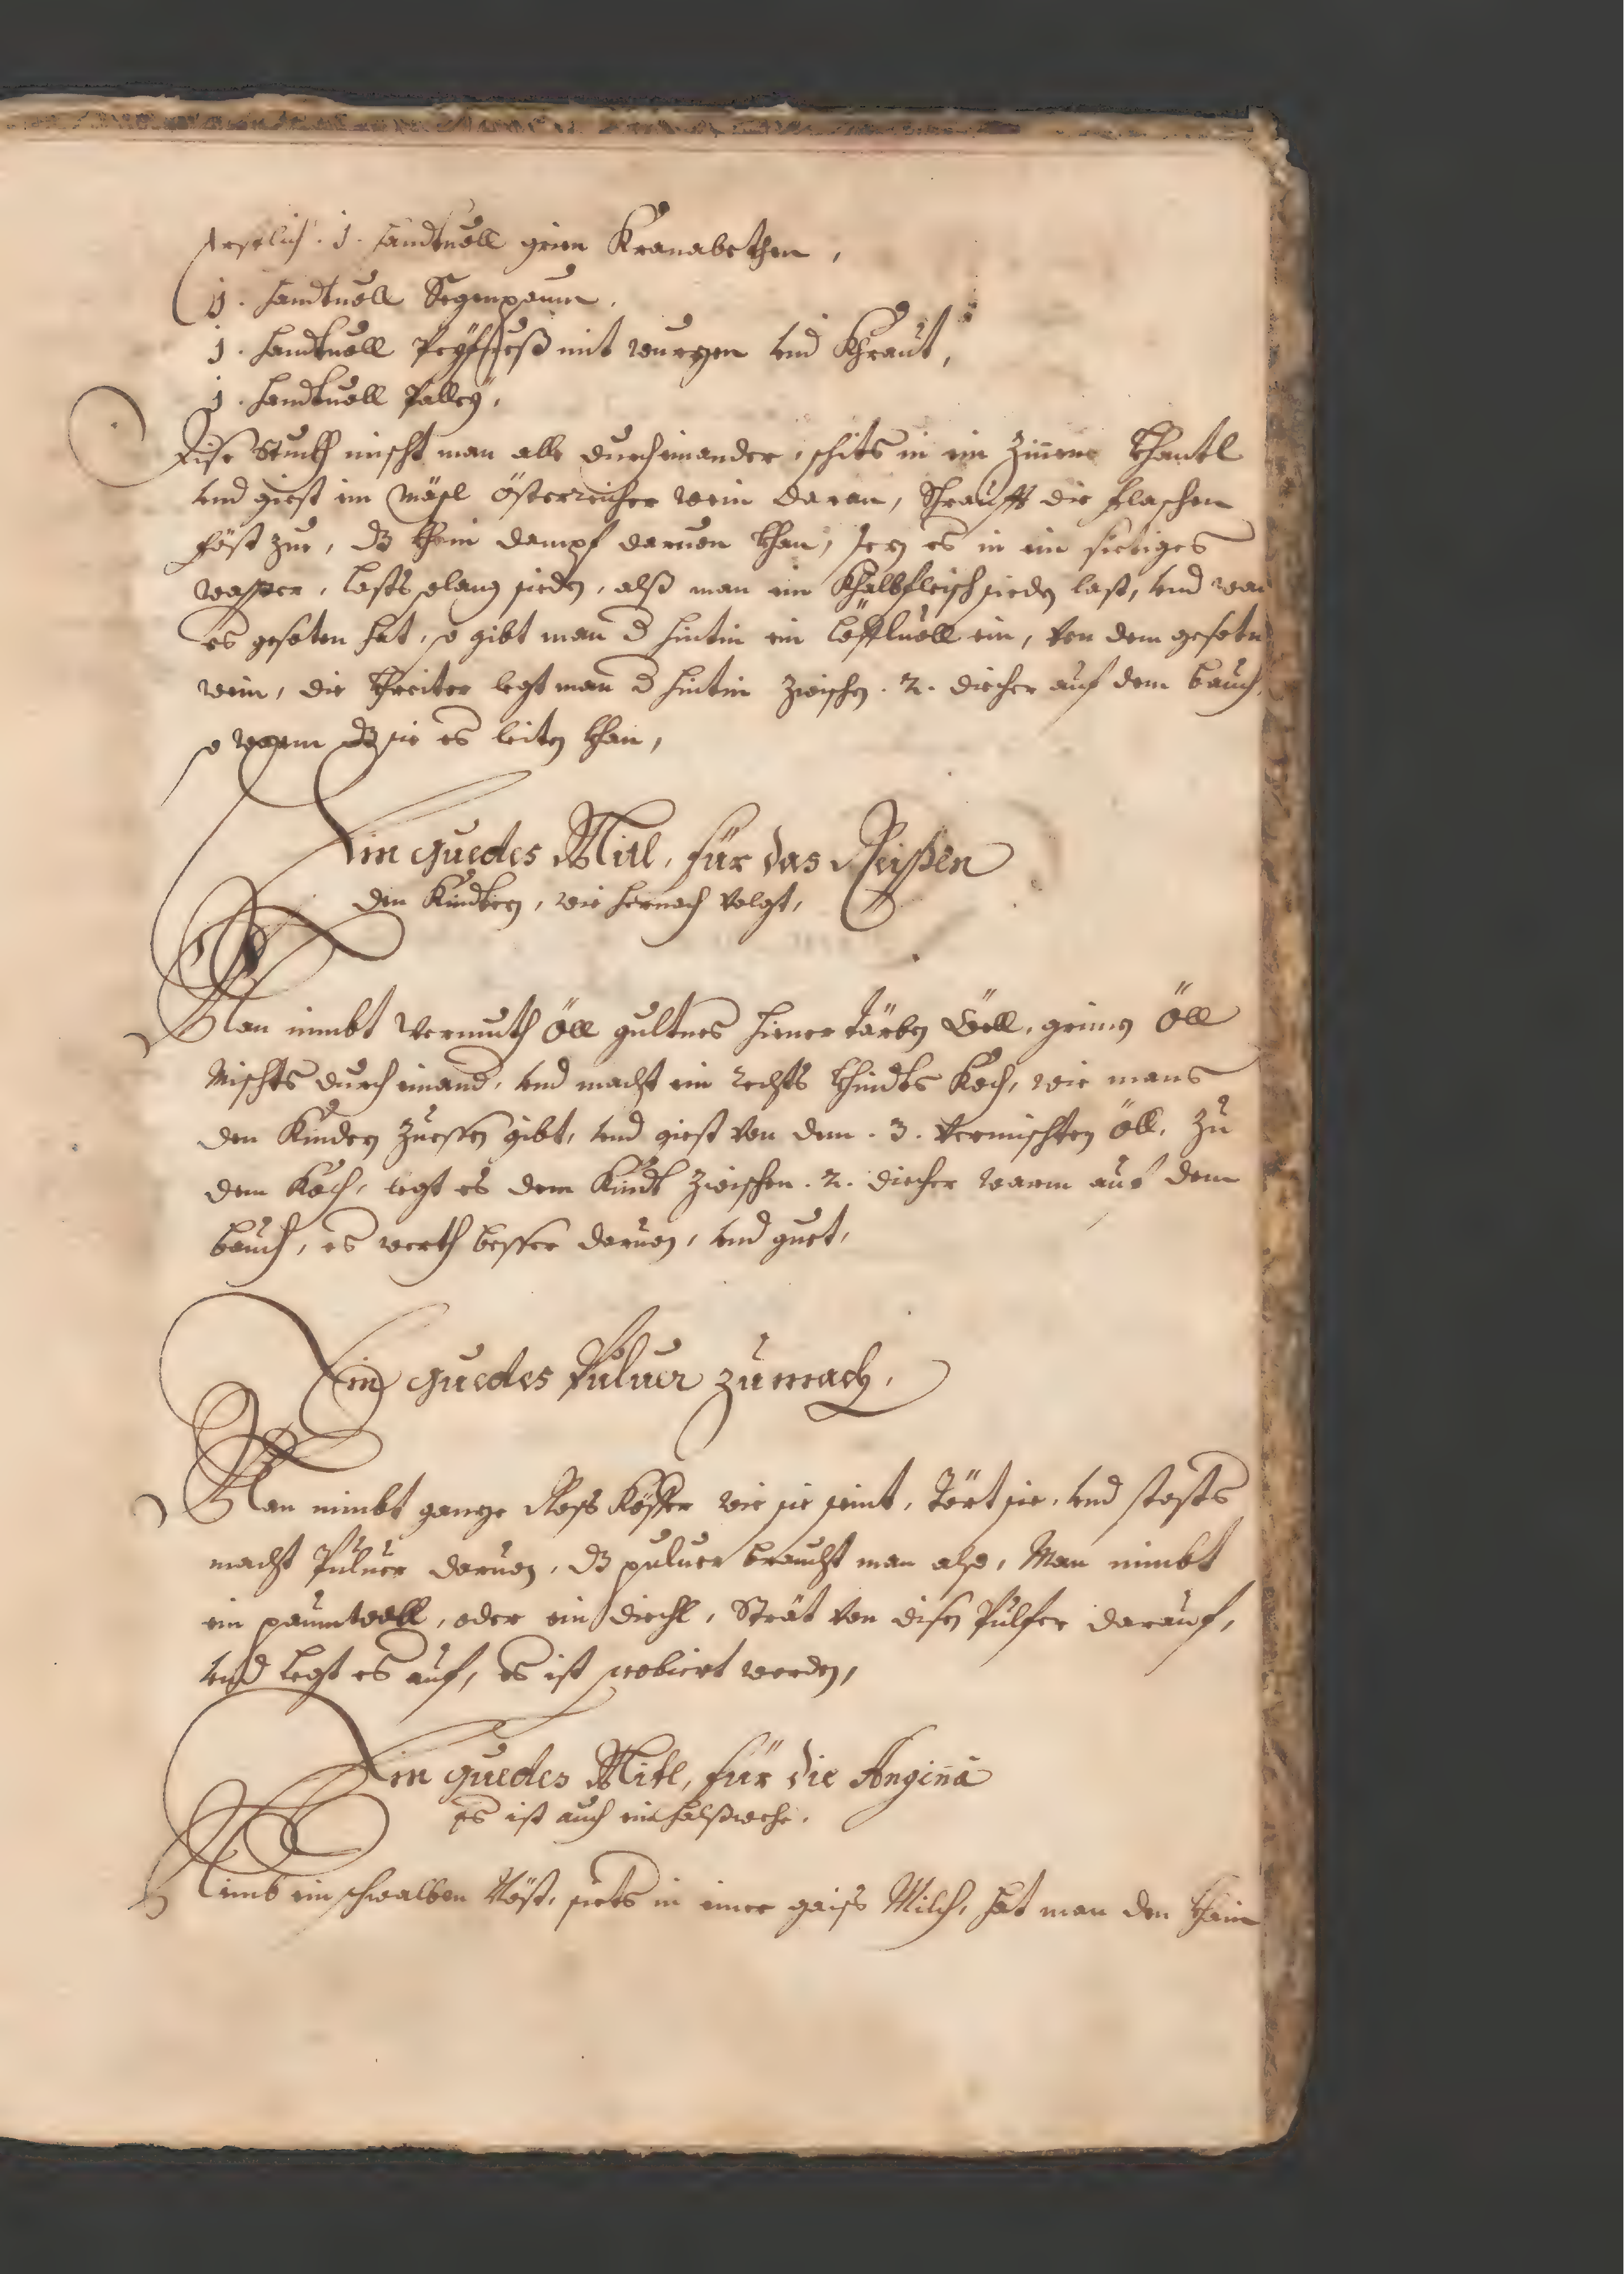 Erstlich. 1. handtuoll grien Kranabethen,
1. handtuoll Segenpaum.
1. handtuoll Peyfueß mit wurzen und Khraut,
1. handtuoll Palley,
Dise Stuckh mischt man alle durcheinander, schits in ein Zinene Khantl
und giest ein Mäsl österreicher wein daran, Schraufft die flaschen
föst zue, dz khein dampf daruon khan, sez es in ein sietiges
wasser, lasts solang sieden, alß man ein Khalbfleisch sieden last, und wan
es gesoten hat, so gibt man d ein löffluoll ein, von dem gesotn
wein, die Kreiter legt man d zwischen. 2. diecher auf dem bauch,
so warm dz sie es leiten khan,
Ein guedes Mitl, für das Reissen
den Kindern, wie hernach volgt,
Man nimbt Wermuth Öll gultnes öll, grienes Öll
Mischts durch einand, und macht ein rechts khindts Koch, wie mans
den Kindern zuessen gibt, und giest von dem. 3. vermischten öll, zu
dem Koch, legt es dem Kindt zwischen. 2. diecher warm auf dem
bauch, es werth besser daruon, und guet,
Ein guedes Puluer zumach,
Man nimbt ganze Ross Köffer wie sie seint, dört sie, und stosts
macht Puluer daruon, dz puluer braucht man also, Man nimbt
ein paumwoll, oder ein diechl, Strät von disen Pulfer darauf,
und legt es auf, es ist probiert worden,
Ein guedes Mitl, für die Angina
es ist auch ein halßwehe.
Nimb ein schwalben Nöst, siets in einer gaiss Milch, hat man den khein